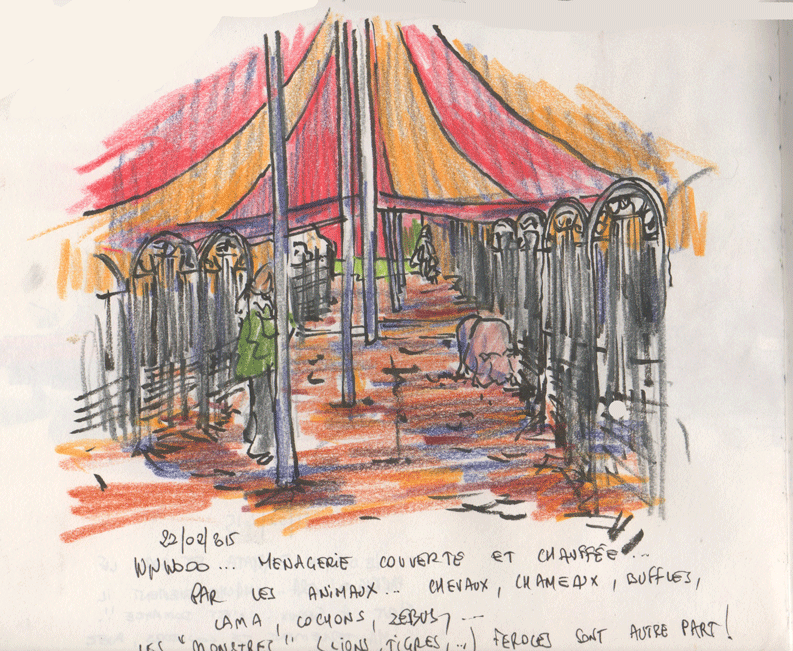 22/02/815
WWWOOO ... MENAGERIE COUVERTE ET CHAUFFÉE ...
PAR LES ANIMAUX ... CHEVAUX, CHAMEAUX, BUFFLES,
LAMA, COCHONS, ZEBUS, ...
LES "MONSTRES" (LIONS, TIGRES, ...) FEROCES SONT AUTRE PART!